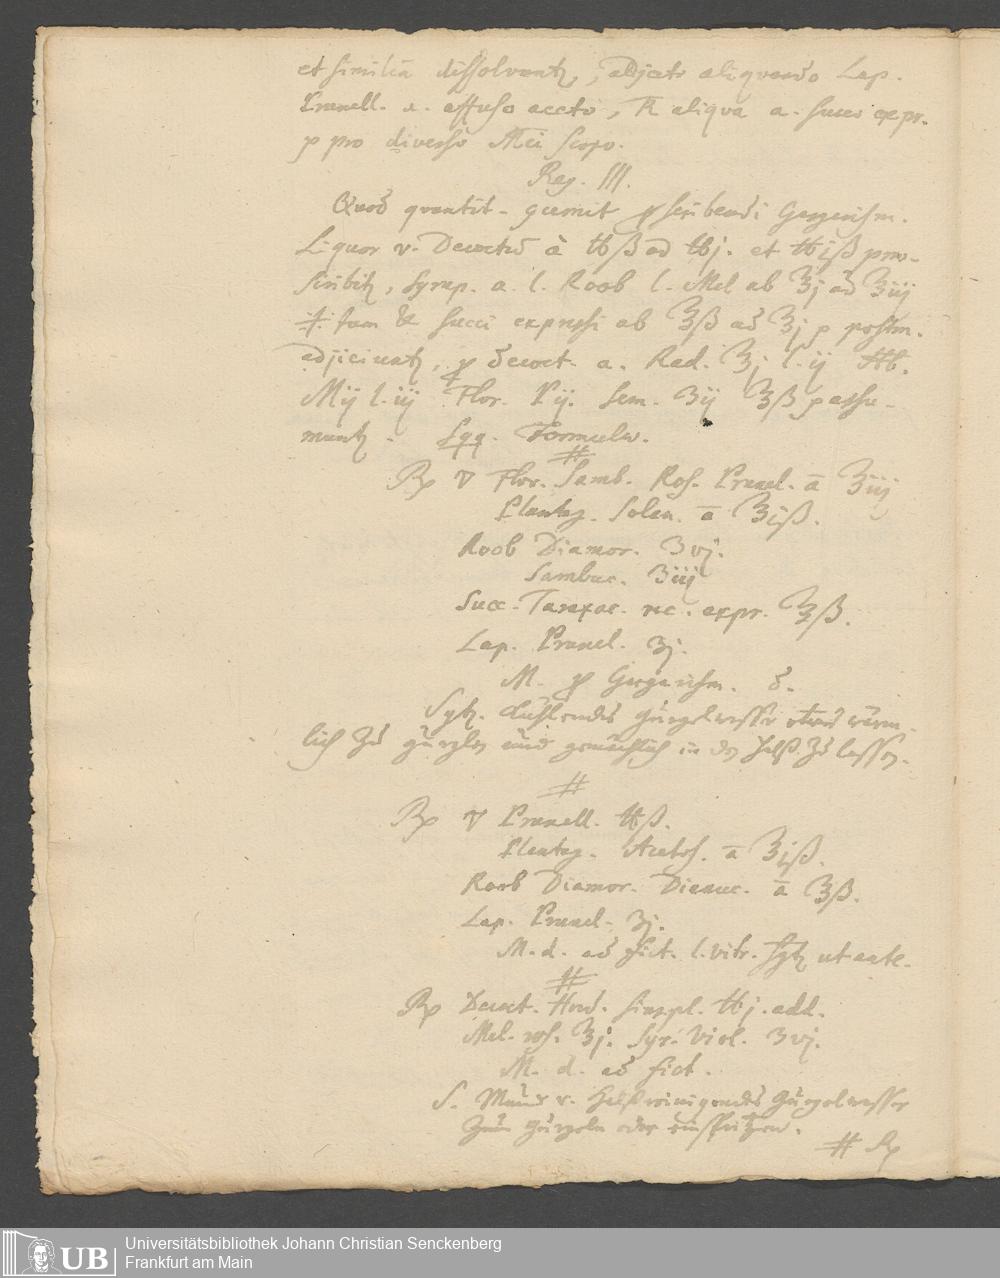 et similia dissolvantz, adjecto aliquando Lap.
Prunell. a. affuso aceto, R aliqua a. succo expr.
p pro diverso Mci scopo.
Reg. III.
Quod quantit. scribendi Gargarism.
Liquor v. Decoctu à ℔ß ad ℔j. et ℔jß prae-
scribitz, Syrup. a. l. Roob l. Mel ab ℥j ad ℥iij
succi expressi ab ℥ß ad ℥j p possm.
adjiciuntz, decoct. a. Rad. ℥j l. ij Hb.
Mij l. iij Flor. Pij. Sem. ʒij ℥ß p assu-
muntz. Sqq. Formulae.
#
℞ ▽ Flor. Samb. Ros. Prunel. ā ℥iij
Plantag. Solan. ā ℥jß.
Roob Diamor. ʒvj.
Sambuc. ʒiij
Succ. Taraxac. rec. expr. ℥ß.
Lap. Prunel. ʒj.
M. Gargarism. d.
Sgtz. Kühlendes Gurgelwasser etwas wärm-
lich Zu gurglen und gemächlich in den Halß Zu lassen.
#
℞ ▽ Prunell. ℔ß.
Plantag. Acetos. ā ℥jß.
Roob Diamor. Dianuc. ā ℥ß.
Lap. Prunel. ʒj.
M. d. ad fict. l. vitr. Sgtz ut ante.
#
℞ Decoct. Hord. simpl. ℔j. add.
Mel. ros. ℥j. Syr. Viol. ʒvj.
M. d. ad fict.
S. Mund v. Halßreinigendes Gurgelwasser
Zum Gurgeln oder einspritzen.
# ℞
Universitätsbibliothek Johann Christian Senckenberg
Frankfurt am Main
UB